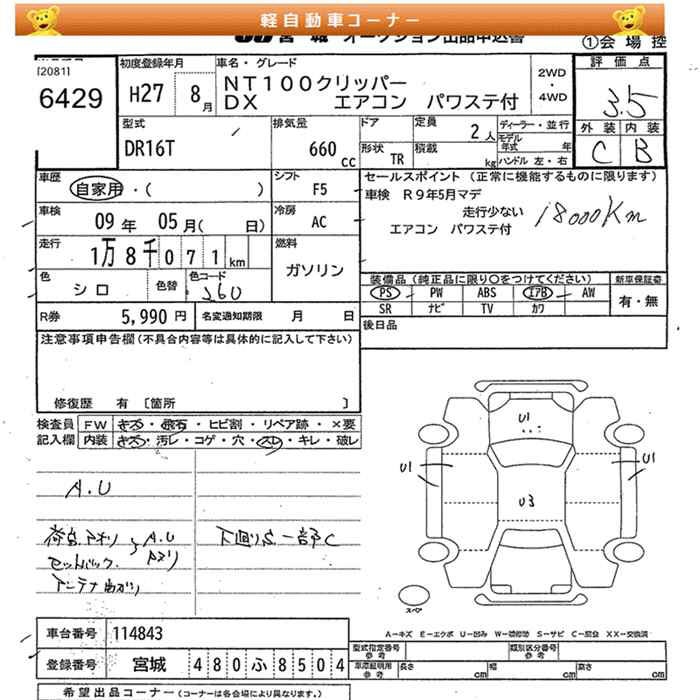 軽自動車コーナー
宮城 オークション出品申込書
①会場控
[2081]
6429
初度登録年月
H27 8月
車名・グレード
NT100クリッパー
DX エアコン パワステ付
2WD
・
4WD
評価点
3.5
外装 内装
C B
型式
DR16T
排気量
660 cc
ドア
形状 TR
定員 2人
積載 kg
ディーラー・並行
モデル年式 年
ハンドル 左・右
車歴
自家用・( )
シフト
F5
セールスポイント(正常に機能するものに限ります)
車検 R9年5月マデ
走行少ない
エアコン パワステ付
18000Km
車検
09年 05月( 日)
冷房
AC
走行
1万8千071km
燃料
ガソリン
色
シロ
色替
色コード
装備品(純正品に限り〇をつけてください)
新車保証書
PS PW ABS エアB AW
有・無
SR ナビ TV カワ
R券 5,990円
名変通知期限 月 日
後日品
注意事項申告欄(不具合内容等は具体的に記入して下さい)
修復歴 有 〔箇所 〕
検査員記入欄
FW キズ・飛石・ヒビ割・リペア跡・×要
内装 キズ・汚レ・コゲ・穴・スレ・キレ・破レ
A.U
荷台、アオリ A.U
セットバック.
アンテナ曲がり
下廻りS 一部C
U1
U1
U1
U3
スペア
A-キズ E-エクボ U-凹み W-補修跡 S-サビ C-腐食 XX-交換済
車台番号 114843
登録番号 宮城 480ふ8504
型式指定番号 参考
類別区分番号 参考
車庫証明用 参考 長さ cm 幅 cm 高さ cm
希望出品コーナー(コーナーは各会場により異なります。)